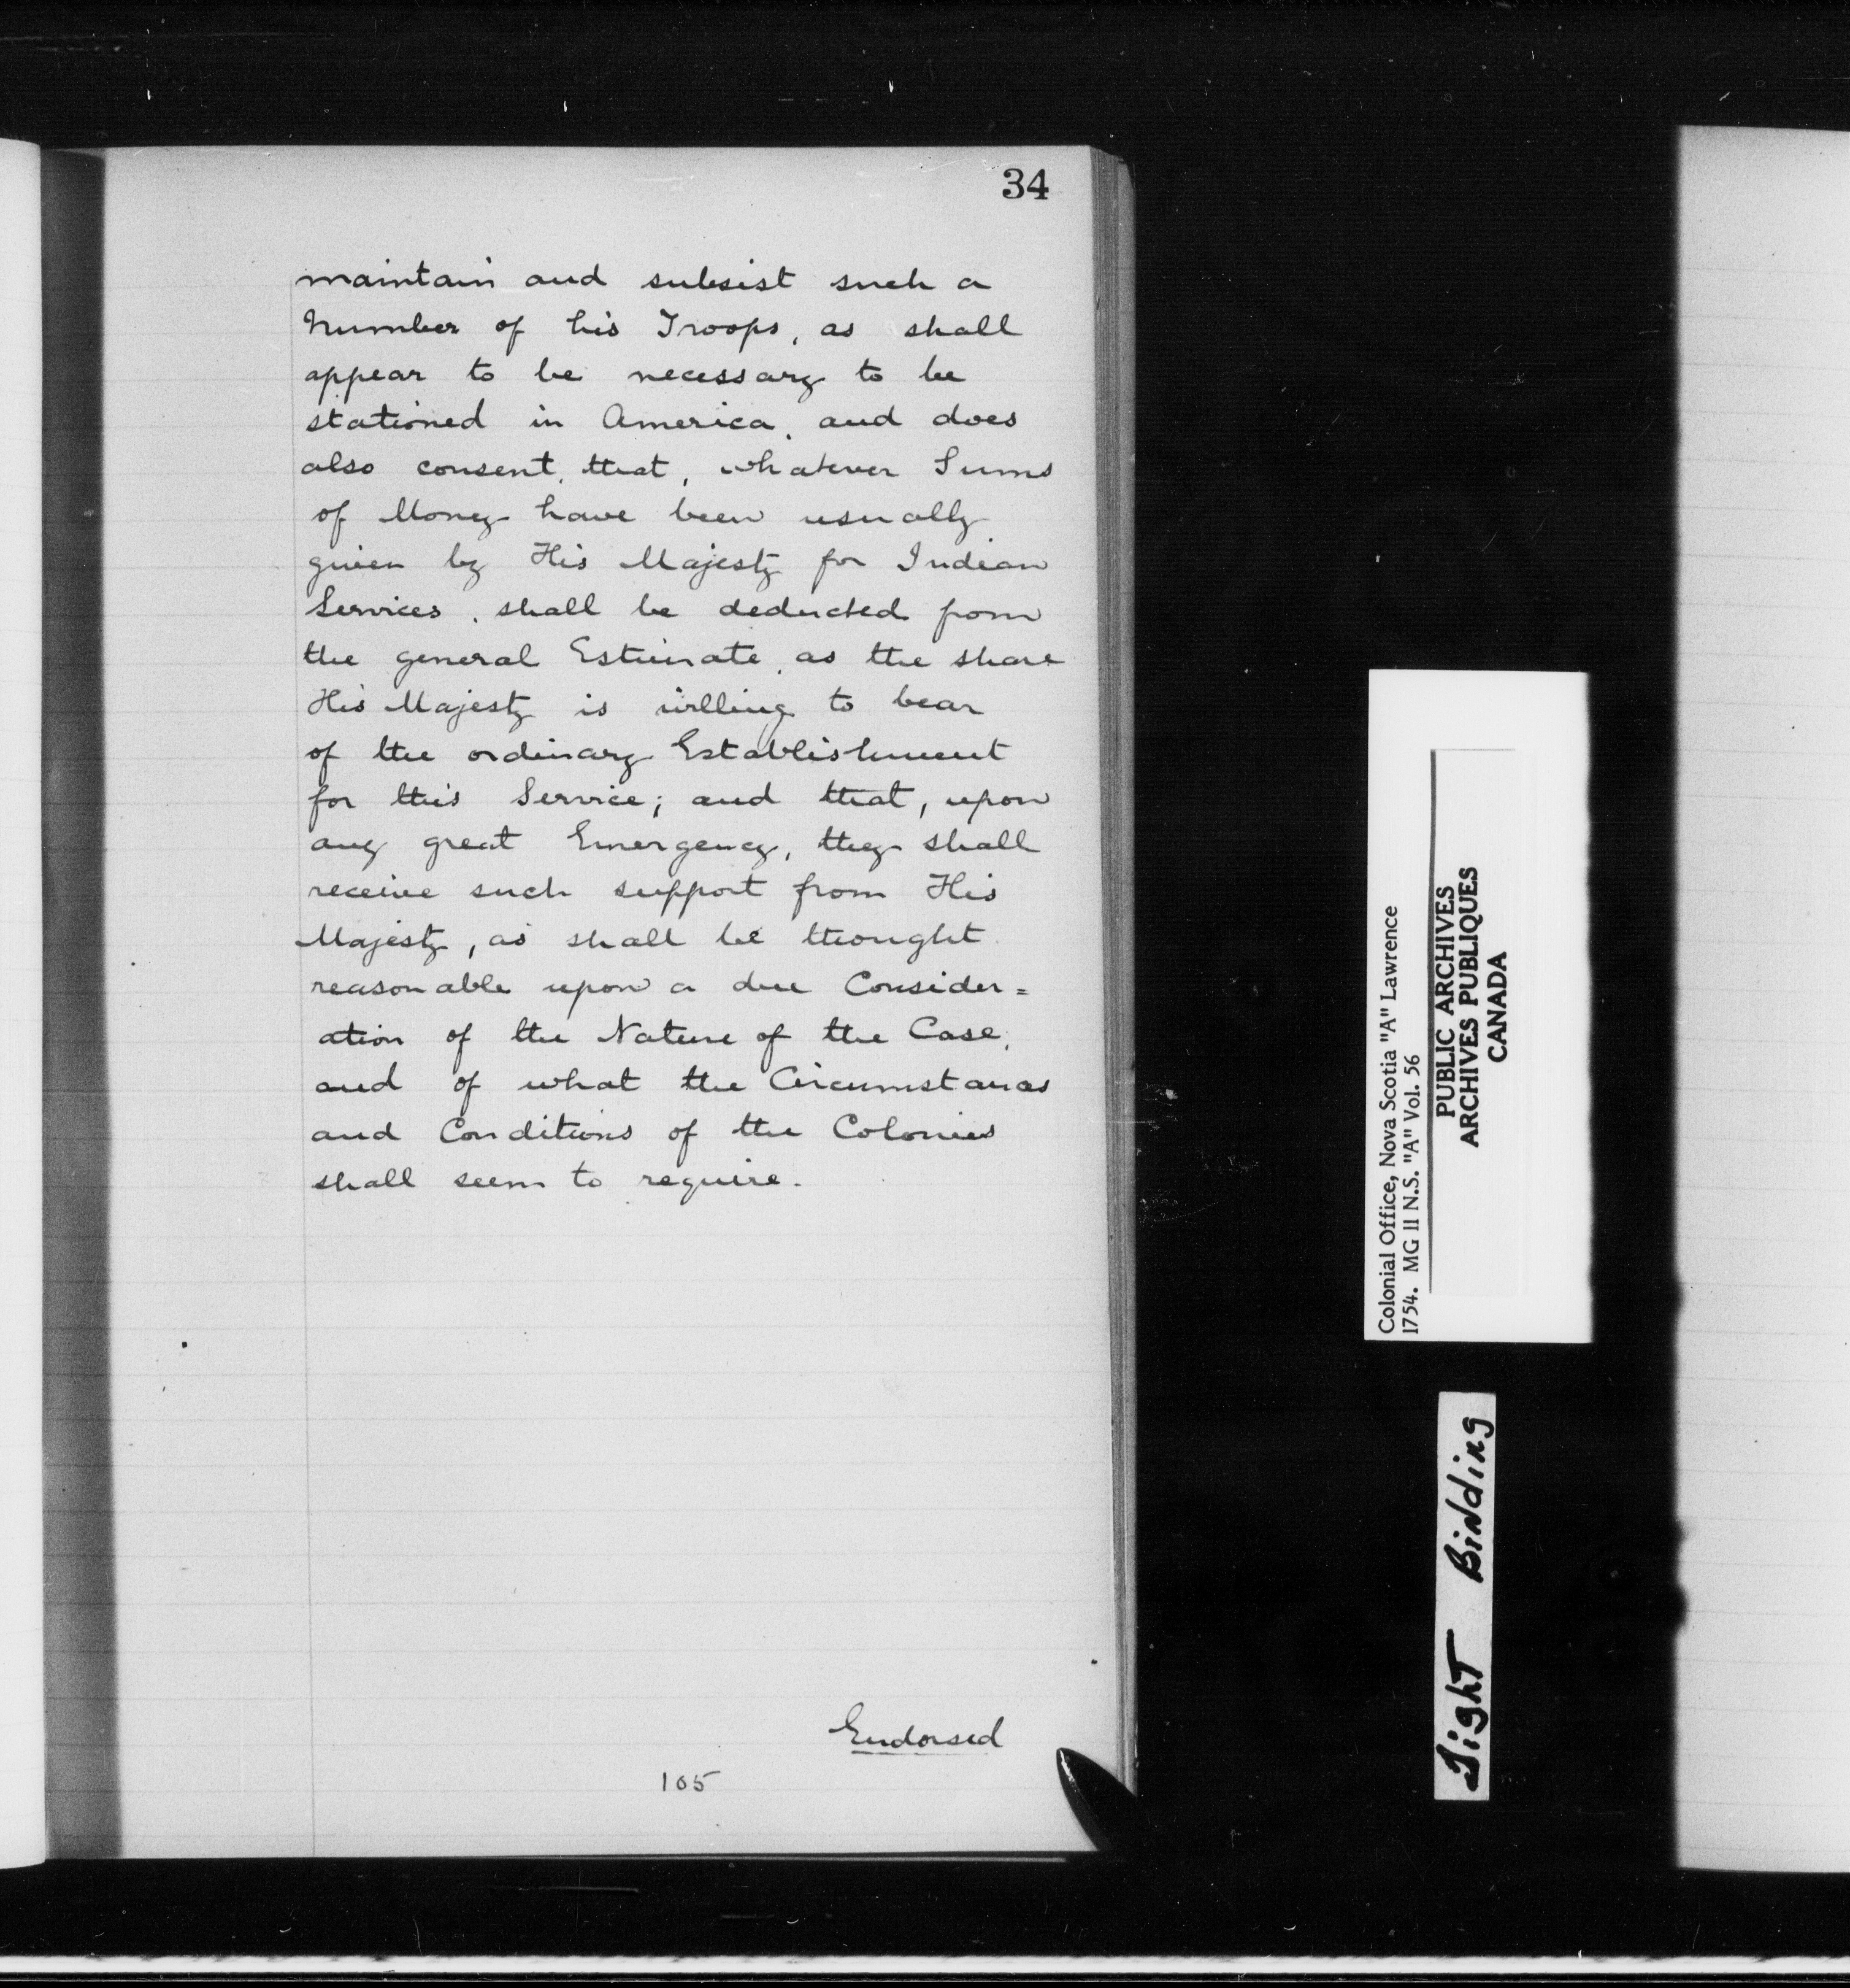 34
maintain and subsist such a
Number of his Troops, as shall
appear to be necessary to be
stationed in America, and does
also consent, that, whatever Sums
of Money have been usually
given by His Majesty for Indian
Services, shall be deducted from
the general Estimate, as the share
His Majesty is willing to bear
of the ordinary Establishment
for this Service; and that, upon
any great Emergency, they shall
receive such support from His
Majesty, as shall be thought
reasonable upon a due Consider=
ation of the Nature of the Case,
and of what the Circumstances
and Conditions of the Colonies
shall seem to require.
Endorsed
105
Colonial Office, Nova Scotia "A" Lawrence
1754. MG 11 N.S. "A" Vol. 56
PUBLIC ARCHIVES
ARCHIVES PUBLIQUES
CANADA
Tight Binding